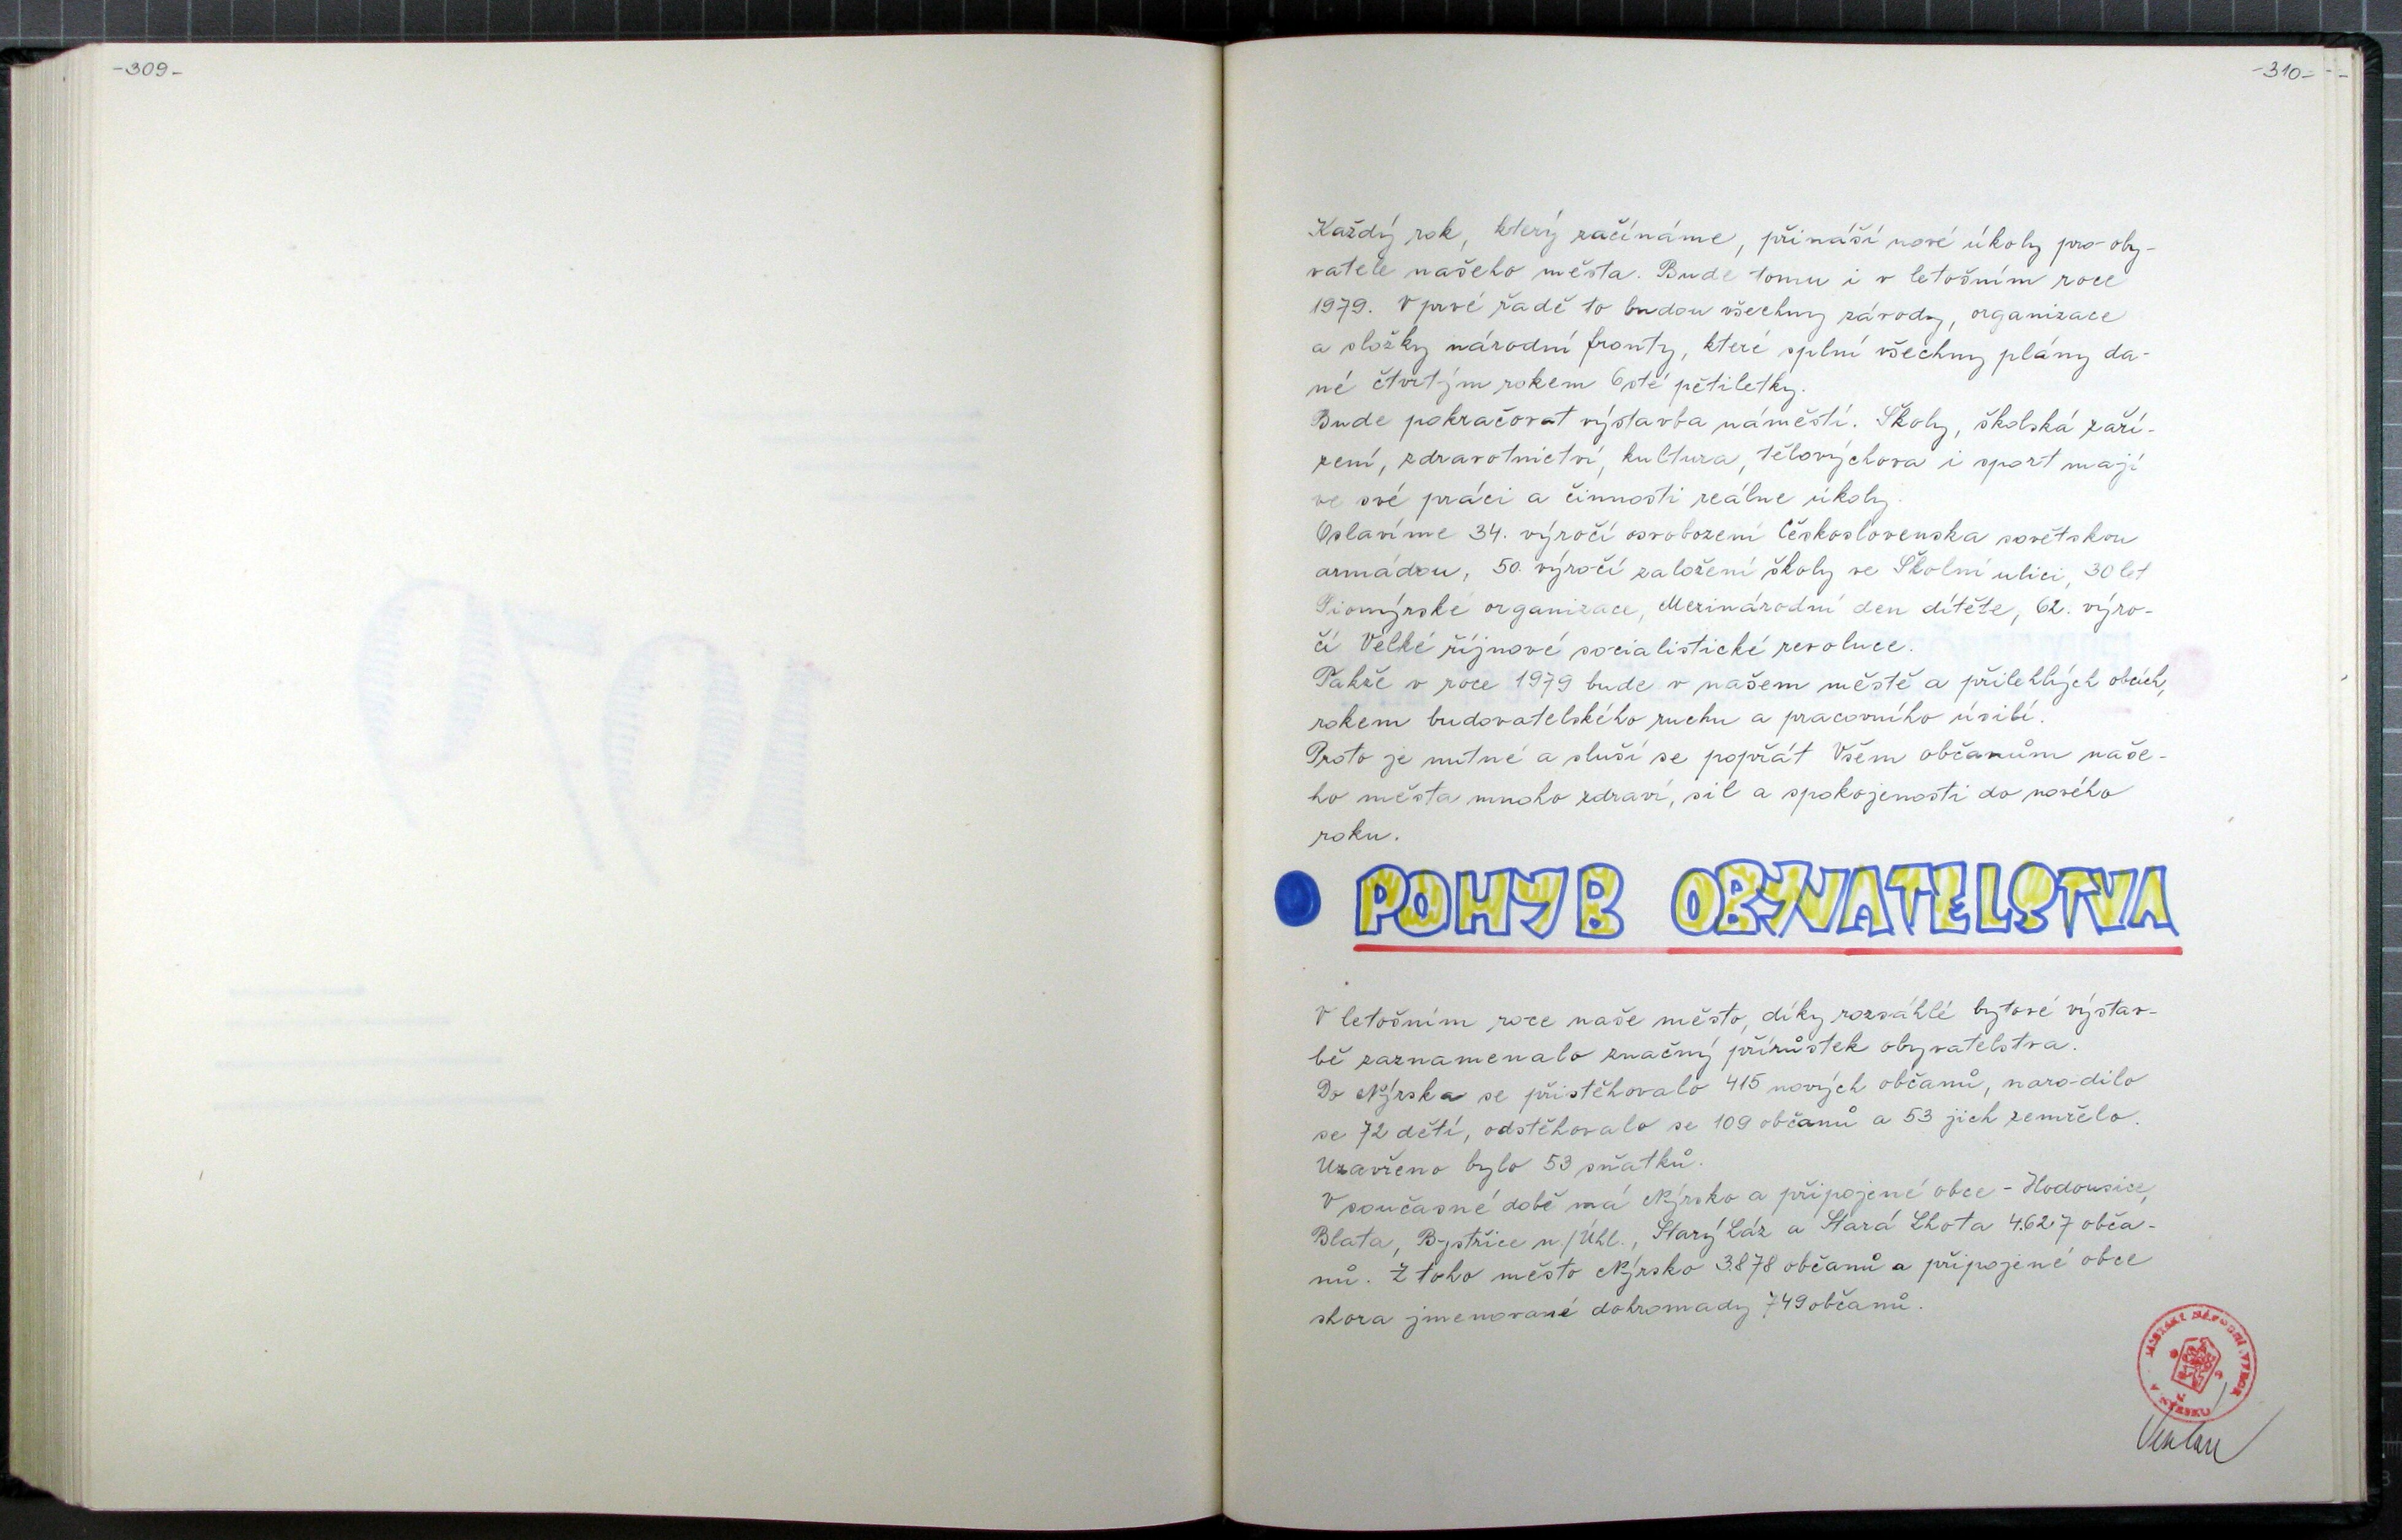 -309-
-310-
Každý rok, který začínáme, přináší nové úkoly pro oby-
vatele našeho města. Bude tomu i v letošním roce
1979. V prvé řadě to budou všechny závody, organizace
a složky národní fronty, které splní všechny plány da-
né čtvrtým rokem 6sté pětiletky.
Bude pokračovat výstavba náměstí. Školy, školská zaří-
zení, zdravotnictví, kultura, tělovýchova i sport mají
ve své práci a činnosti reálne úkoly.
Oslavíme 34. výročí osvobození Československa sovětskou
armádou, 50. výročí založení školy ve Školní ulici, 30 let
Pionýrské organizace, Mezinárodní den dítěte, 62. výro-
čí Velké říjnové socialistické revoluce.
Takže v roce 1979 bude v našem městě a přilehlých obcích,
rokem budovatelského ruchu a pracovního úsilí.
Proto je nutné a sluší se popřát Všem občanům naše-
ho města mnoho zdraví, sil a spokojenosti do nového
roku.
POHYB OBYVATELSTVA
V letošním roce naše město, díky rozsáhlé bytové výstav-
bě zaznamenalo značný přírůstek obyvatelstva.
Do Nýrska se přistěhovalo 415 nových občanů, narodilo
se 72 dětí, odstěhovalo se 109 občanů a 53 jich zemřelo.
Uzavřeno bylo 53 sňatků.
V současné době má Nýrsko a připojené obce - Hodousice,
Blata, Bystřice n./Úhl., Starý Láz a Stará Lhota 4.627 obča-
nů. Z toho město Nýrsko 3.878 občanů a připojené obce
shora jmenované dohromady 749 občanů.
MĚSTSKÝ NÁRODNÍ VÝBOR
V NÝRSKU